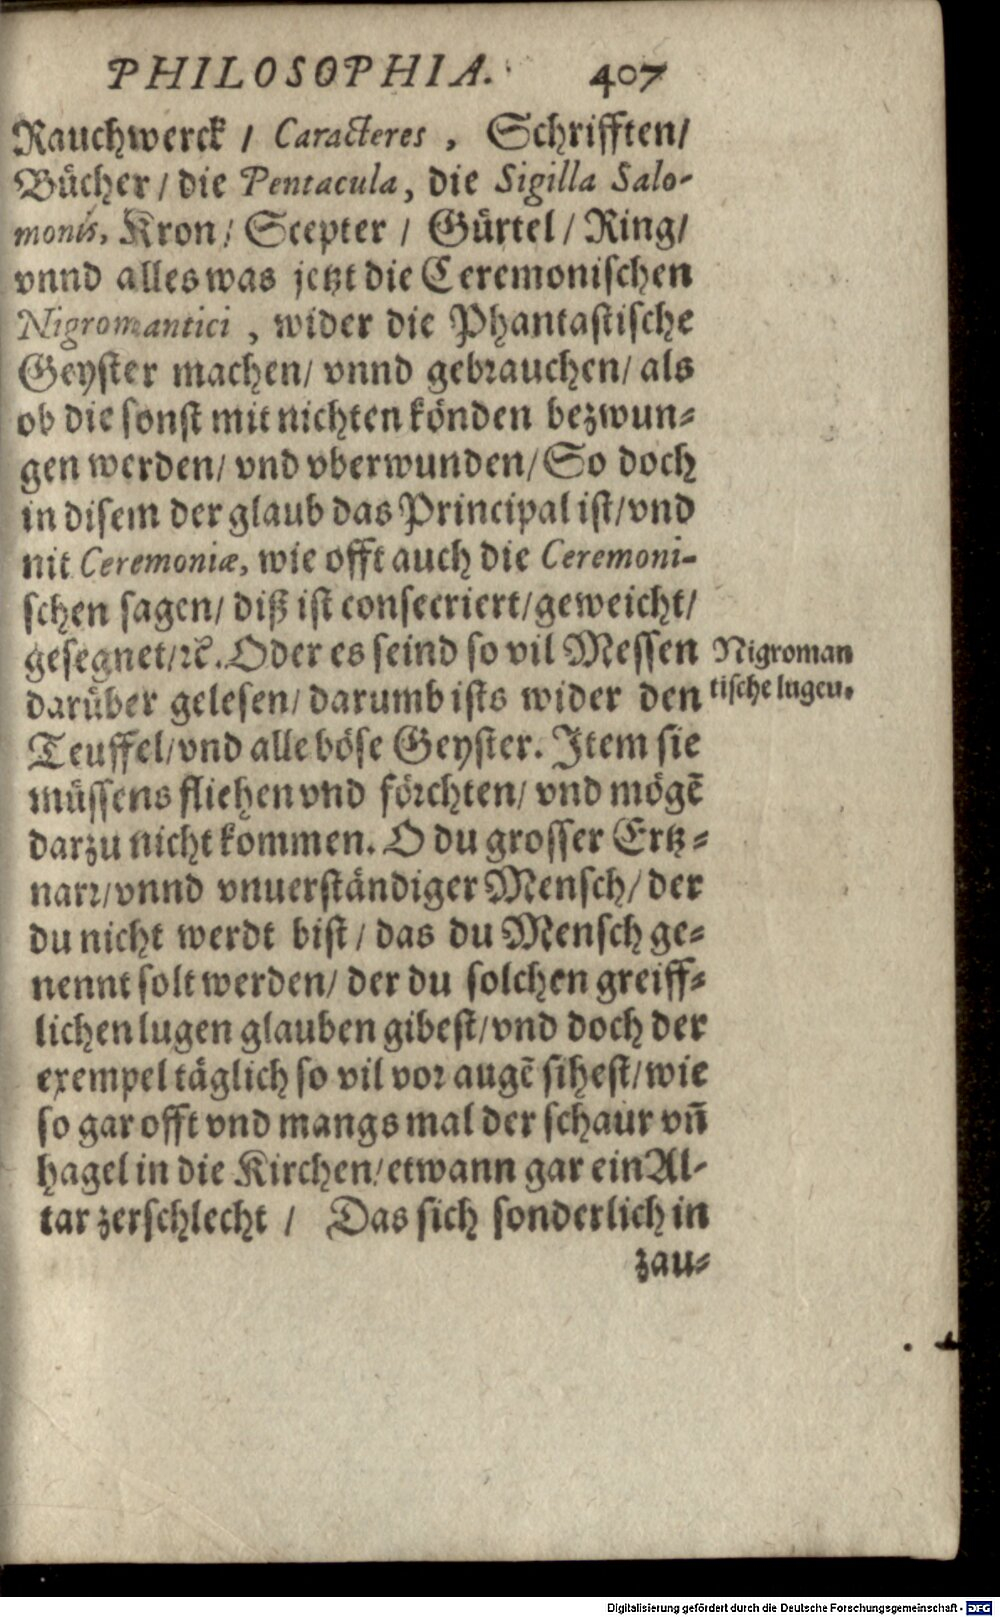 PHILOSOPHIA. 407
Rauchwerck / Caracteres , Schrifften/
Bücher / die Pentacula, die Sigilla Salo-
monis, Kron/ Scepter / Gürtel / Ring/
vnnd alles was jetzt die Ceremonischen
Nigromantici , wider die Phantastische
Geyster machen/ vnnd gebrauchen/ als
ob die sonst mit nichten könden bezwun-
gen werden/ vnd vberwunden/ So doch
in disem der glaub das Principal ist/ vnd
nit Ceremoniæ, wie offt auch die Ceremoni-
schen sagen/ diß ist consecriert/ geweicht/
gesegnet/ꝛc. Oder es seind so vil Messen
darüber gelesen/ darumb ists wider den
Nigroman
tische lugen.
Teuffel/ vnd alle böse Geyster. Item sie
müssens fliehen vnd förchten/ vnd mögẽ
darzu nicht kommen. O du grosser Ertz-
narr/ vnnd vnuerständiger Mensch/ der
du nicht werdt bist / das du Mensch ge-
nennt solt werden/ der du solchen greiff-
lichen lugen glauben gibest/ vnd doch der
exempel täglich so vil vor augẽ sihest/ wie
so gar offt vnd mangs mal der schaur vñ
hagel in die Kirchen/ etwann gar ein Al-
tar zerschlecht / Das sich sonderlich in
zau-
Digitalisierung gefördert durch die Deutsche Forschungsgemeinschaft - DFG